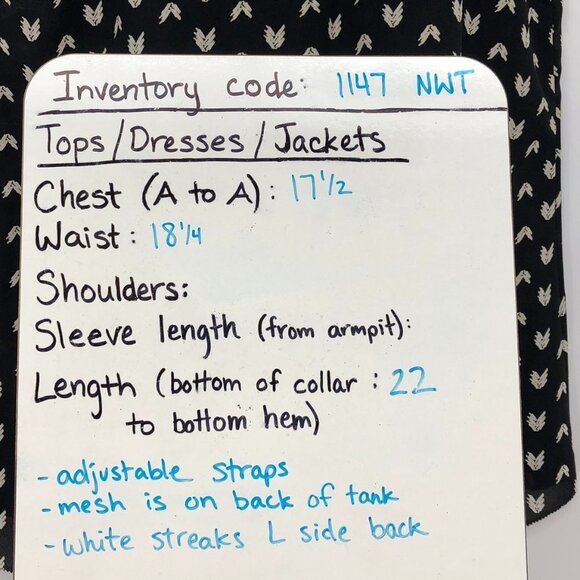 Inventory code: 1147 NWT
Tops/Dresses/Jackets
Chest (A to A): 17 1/2
Waist: 18 1/4
Shoulders:
Sleeve length (from armpit):
Length (bottom of collar : 22
to bottom hem)
- adjustable straps
- mesh is on back of tank
- white streaks L side back